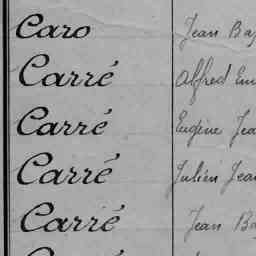 Caro Jean
Carré Alfred
Carré Eugène
Carré Julien
Carré Jean